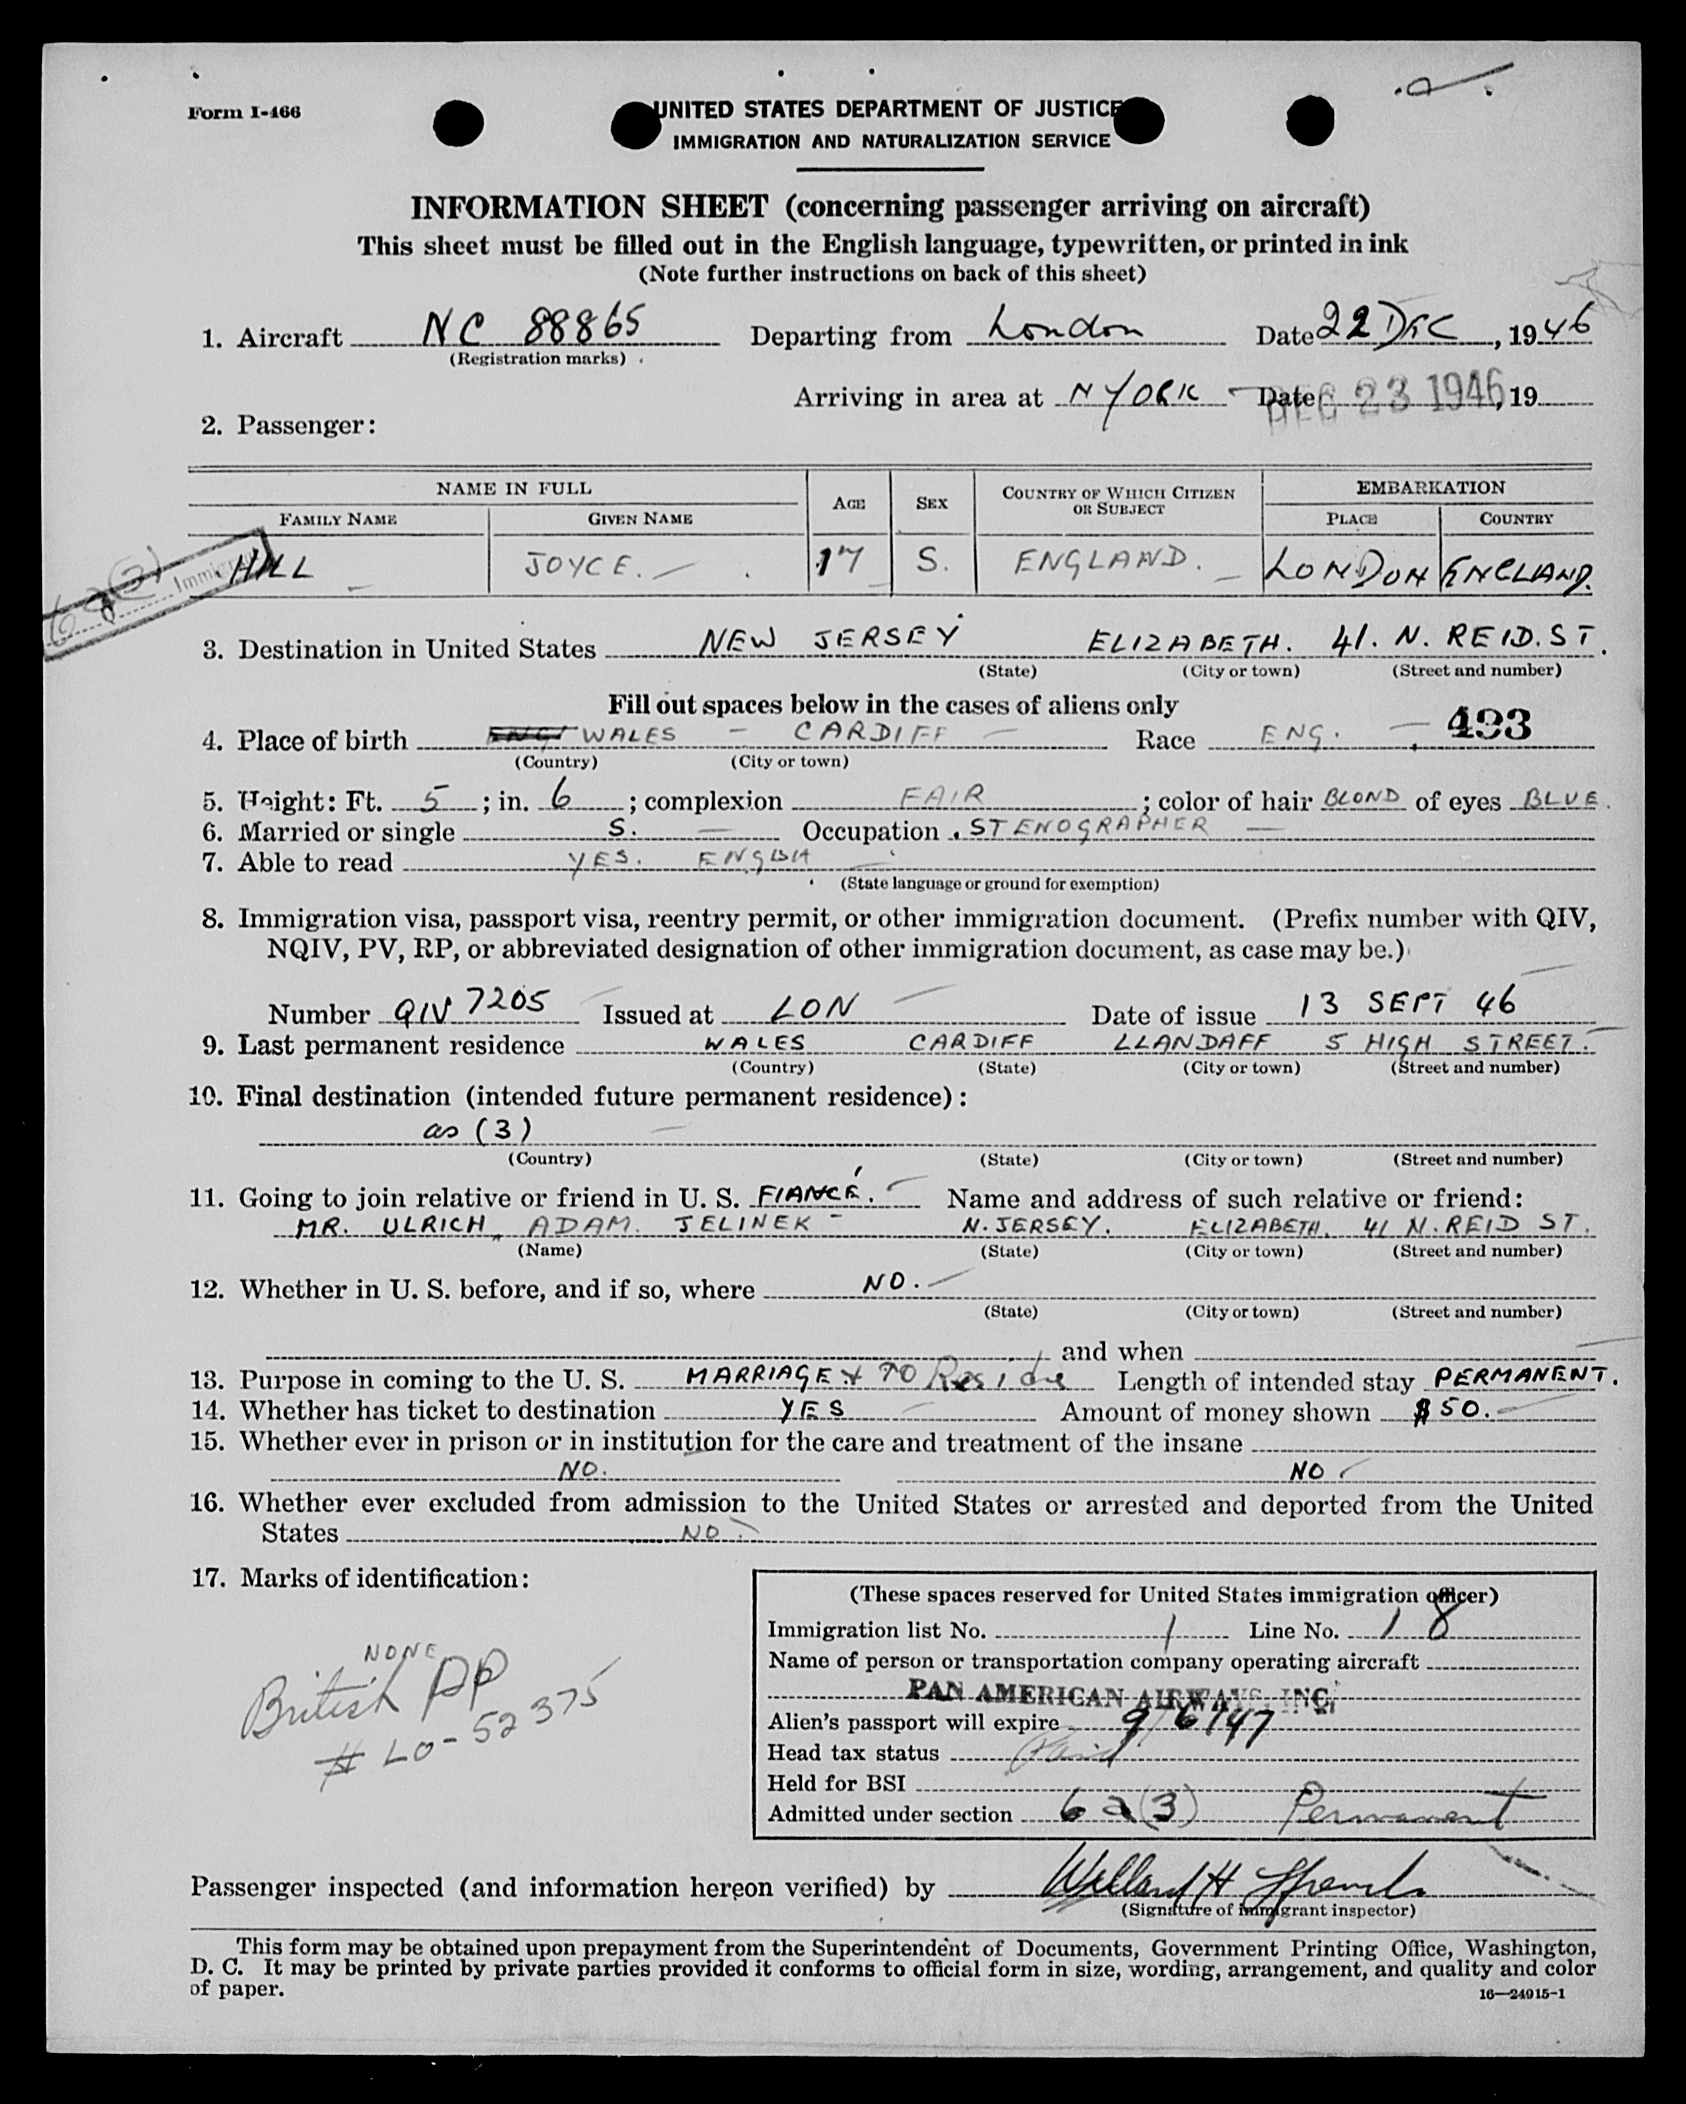 Form I-466
UNITED STATES DEPARTMENT OF JUSTICE
IMMIGRATION AND NATURALIZATION SERVICE
INFORMATION SHEET (concerning passenger arriving on aircraft)
This sheet must be filled out in the English language, typewritten, or printed in ink
(Note further instructions on back of this sheet)
1. Aircraft NC 88865 Departing from London Date 22 DEC, 1946
(Registration marks)
Arriving in area at N YORK Date DEC 23 1946, 19
2. Passenger:
NAME IN FULL AGE SEX COUNTRY OF WHICH CITIZEN OR SUBJECT EMBARKATION
FAMILY NAME GIVEN NAME PLACE COUNTRY
HILL JOYCE. 17 S. ENGLAND. LONDON ENGLAND.
6a(3) Immigrant
3. Destination in United States NEW JERSEY ELIZABETH. 41. N. REID. ST.
(State) (City or town) (Street and number)
Fill out spaces below in the cases of aliens only
493
4. Place of birth ENG. WALES - CARDIFF Race ENG.
(Country) (City or town)
5. Height: Ft. 5; in. 6; complexion FAIR; color of hair BLOND of eyes BLUE.
6. Married or single S. Occupation STENOGRAPHER
7. Able to read YES. ENGLISH
(State language or ground for exemption)
8. Immigration visa, passport visa, reentry permit, or other immigration document. (Prefix number with QIV,
NQIV, PV, RP, or abbreviated designation of other immigration document, as case may be.)
Number QIV 7205 Issued at LON Date of issue 13 SEPT 46
9. Last permanent residence WALES CARDIFF LLANDAFF 5 HIGH STREET.
(Country) (State) (City or town) (Street and number)
10. Final destination (intended future permanent residence):
as (3)
(Country) (State) (City or town) (Street and number)
11. Going to join relative or friend in U. S. FIANCÉ. Name and address of such relative or friend:
MR. ULRICH, ADAM. JELINEK - N. JERSEY. ELIZABETH. 41 N. REID ST.
(Name) (State) (City or town) (Street and number)
12. Whether in U. S. before, and if so, where NO.
(State) (City or town) (Street and number)
and when
13. Purpose in coming to the U. S. MARRIAGE + TO Reside Length of intended stay PERMANENT.
14. Whether has ticket to destination YES Amount of money shown $50.
15. Whether ever in prison or in institution for the care and treatment of the insane
NO. NO
16. Whether ever excluded from admission to the United States or arrested and deported from the United
States NO.
17. Marks of identification:
NONE
British PP
# LO-52375
(These spaces reserved for United States immigration officer)
Immigration list No. 1 Line No. 18
Name of person or transportation company operating aircraft
PAN AMERICAN AIRWAYS, INC.
Alien's passport will expire 9/6/47
Head tax status Paid
Held for BSI
Admitted under section 6a(3) Permanent
Passenger inspected (and information hereon verified) by Willard H
(Signature of immigrant inspector)
This form may be obtained upon prepayment from the Superintendent of Documents, Government Printing Office, Washington,
D. C. It may be printed by private parties provided it conforms to official form in size, wording, arrangement, and quality and color
of paper.
16—24915-1